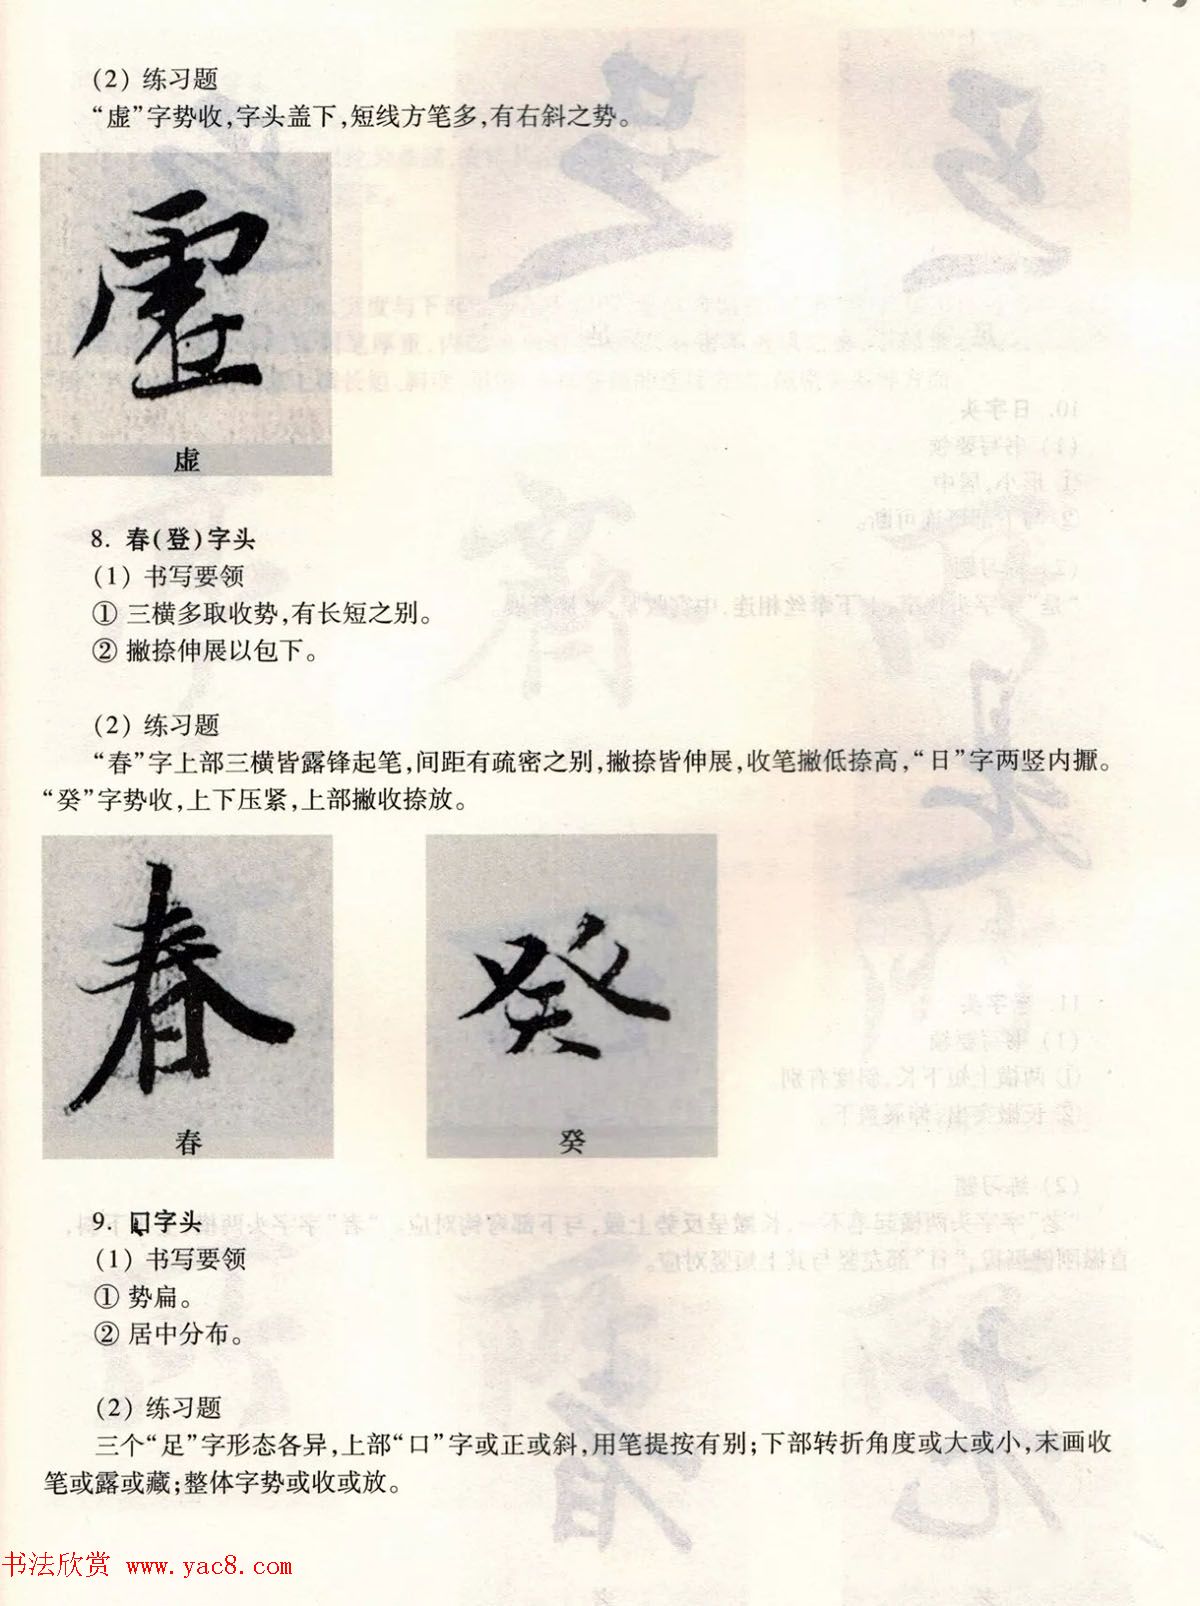 (2) 练习题
“虚”字势收,字头盖下,短线方笔多,有右斜之势。
虚
8. 春(登)字头
(1) 书写要领
① 三横多取收势,有长短之别。
② 撇捺伸展以包下。
(2) 练习题
“春”字上部三横皆露锋起笔,间距有疏密之别,撇捺皆伸展,收笔撇低捺高,“日”字两竖内擫。
“癸”字势收,上下压紧,上部撇收捺放。
春 癸
9. 口字头
(1) 书写要领
① 势扁。
② 居中分布。
(2) 练习题
三个“足”字形态各异,上部“口”字或正或斜,用笔提按有别;下部转折角度或大或小,末画收
笔或露或藏;整体字势或收或放。
书法欣赏 www.yac8.com